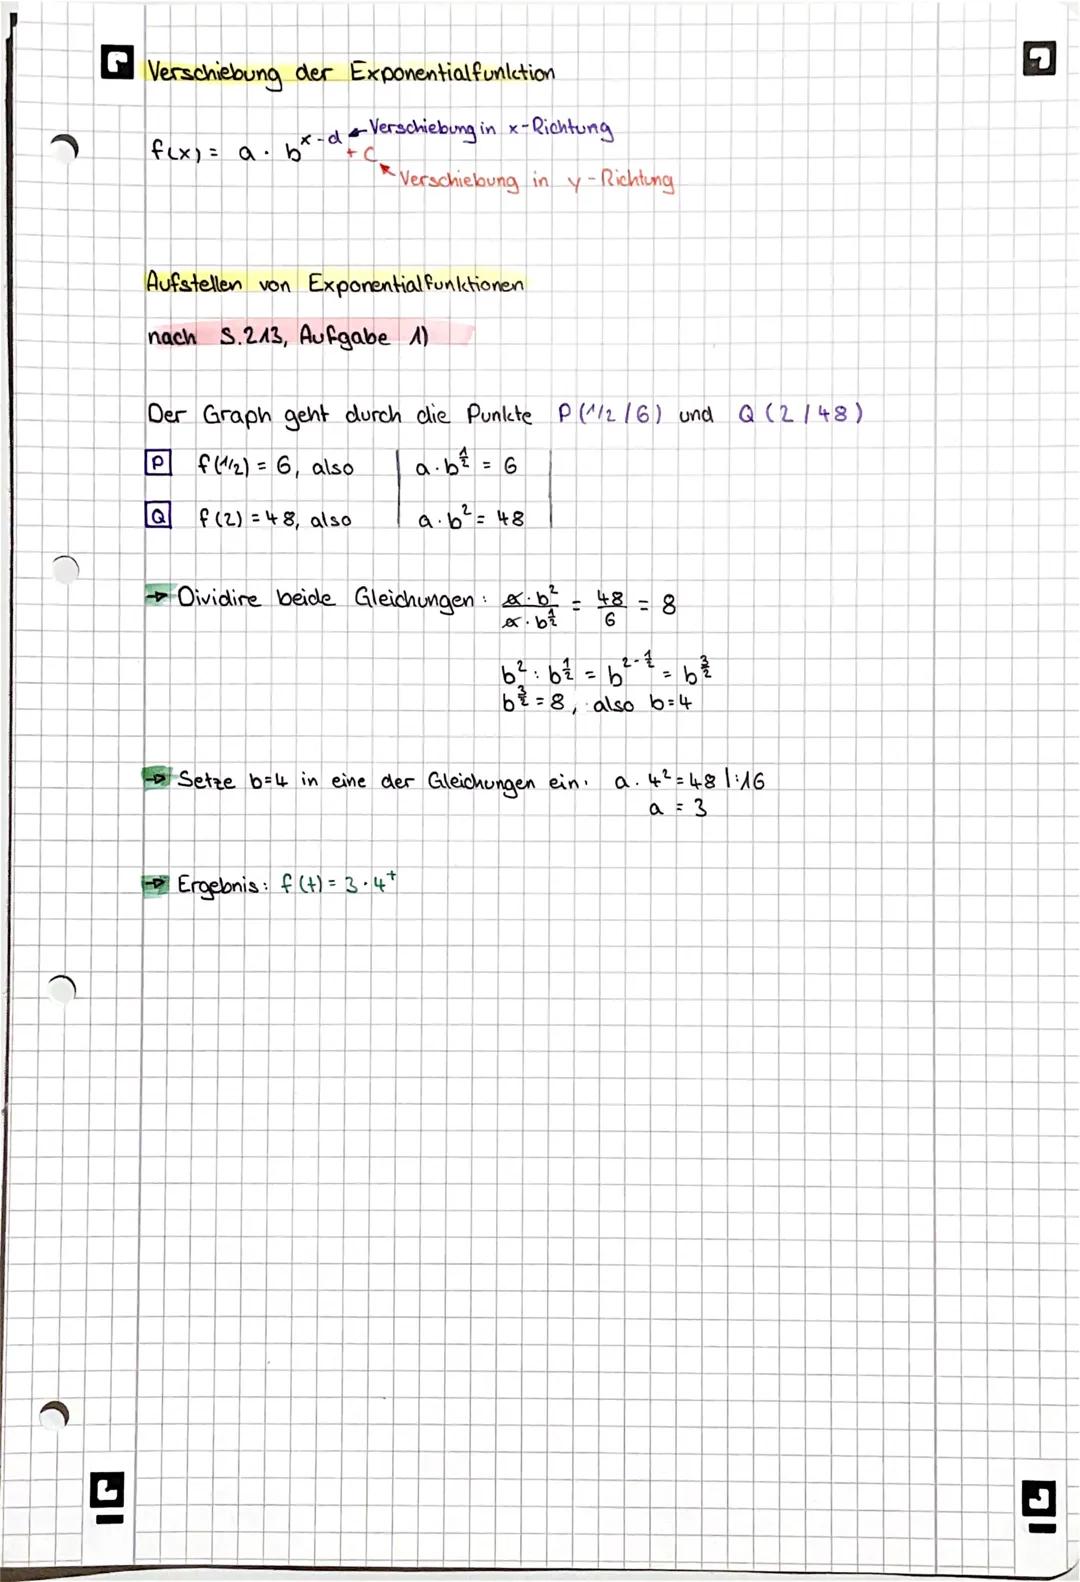 Verschiebung der Exponentialfunktion
f(x) = a · b^(x-d) + c
Verschiebung in x-Richtung
Verschiebung in y-Richtung
Aufstellen von Exponentialfunktionen
nach S.213, Aufgabe 1)
Der Graph geht durch die Punkte P(1/2/6) und Q(2/48)
P f(1/2) = 6, also | a·b^(1/2) = 6 |
Q f(2) = 48, also | a·b² = 48 |
→ Dividire beide Gleichungen: (a·b²)/(a·b^(1/2)) = 48/6 = 8
b² : b^(1/2) = b^(2-1/2) = b^(3/2)
b^(3/2) = 8, also b=4
→ Setze b=4 in eine der Gleichungen ein: a·4² = 48 |:16
a = 3
→ Ergebnis: f(t) = 3·4^t